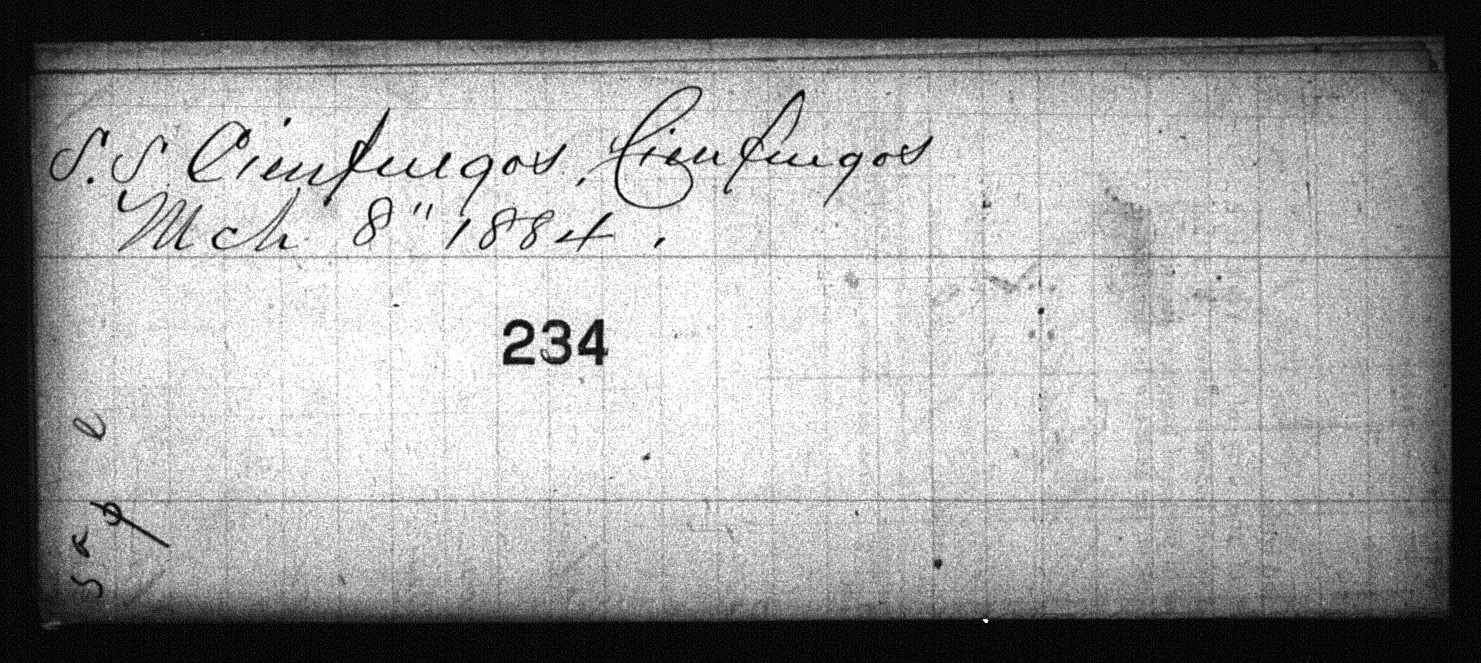 S.S Cienfuegos, Cienfuegos
Mch 8" 1884.
234